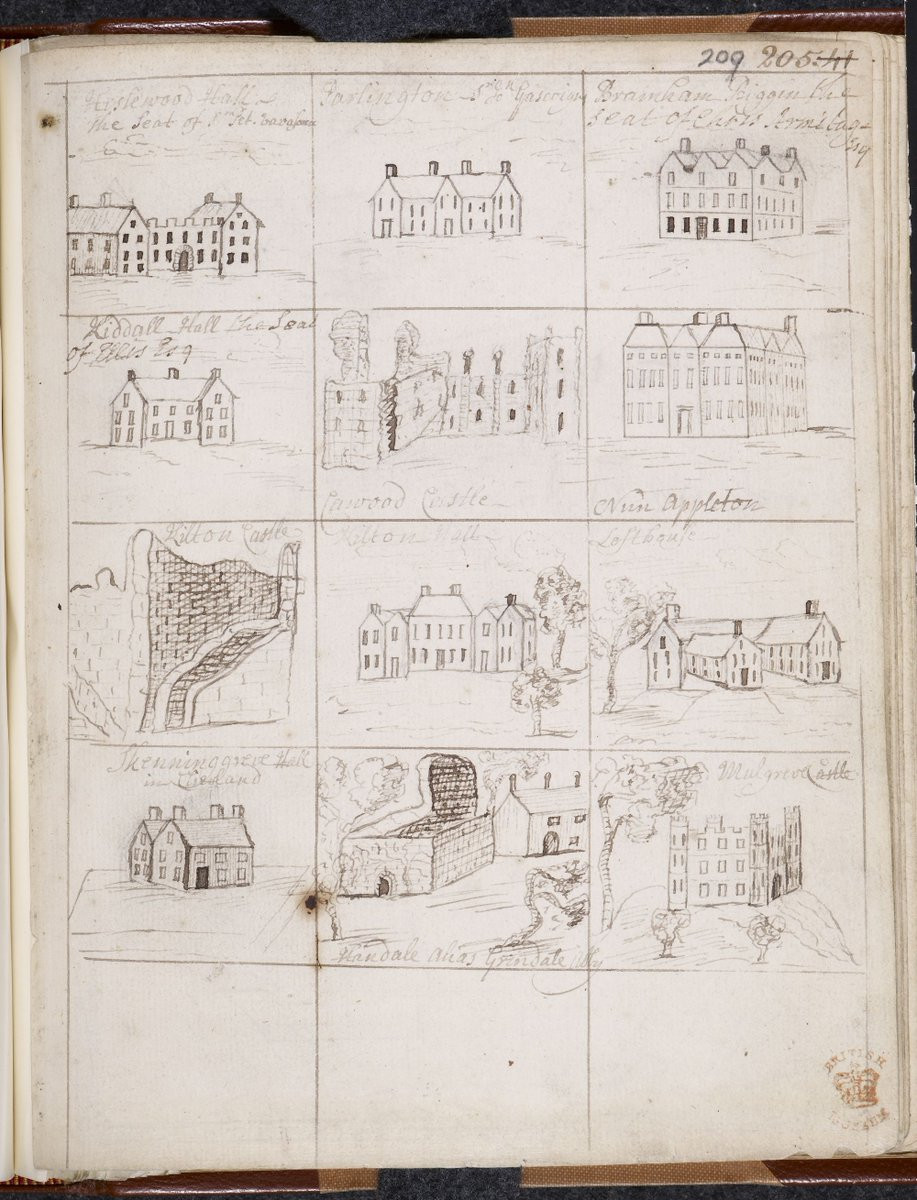 209 205 41
Hislewood Hall
the Seat of Sr Pet. Vavasour
&c
Parlington Sr Gascoign
Bramham Biggin the
seat of Armitag
Esq
Kiddall Hall the Seat
of Ellis Esq
Cawood Castle
Nun Appleton
Kilton Castle
Kilton Hall
Lofthouse
Skenninggreve Hall
in Cleeland
Handale Alias Grendale Abby
Mulgreve Castle
BRITISH
MUSEUM